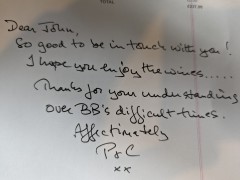 Dear John,
So good to be in touch with you!
I hope you enjoy the wines.....
Thanks for your understanding
over BB's difficult times.
Affectionately
P & C
xx